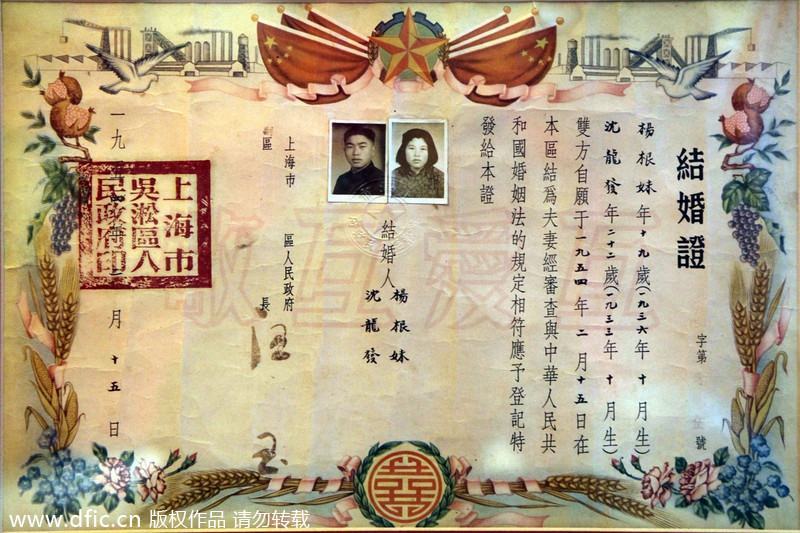 結婚證
字第 號
楊根妹年十九歲(一九三六年十月生)
沈龍發年二十二歲(一九三三年十月生)
雙方自願于一九五四年二月十五日在
本區結爲夫妻經審查與中華人民共
和國婚姻法的規定相符應予登記特
發給本證
結婚人
楊根妹
沈龍發
上海市 區人民政府
區長
一九 月十五日
上海市
吳淞區人
民政府印
互愛互敬
囍
www.dfic.cn 版权作品 请勿转载